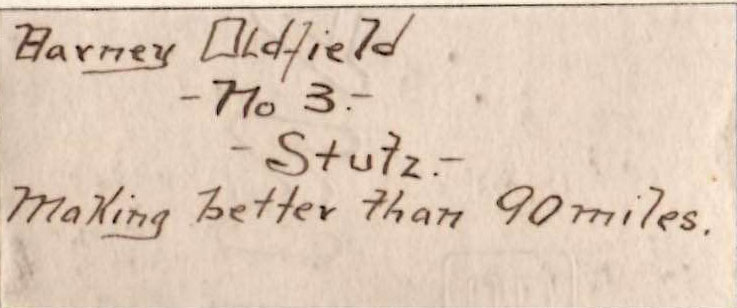 Barney Oldfield
- No 3.-
- Stutz.-
Making better than 90 miles.